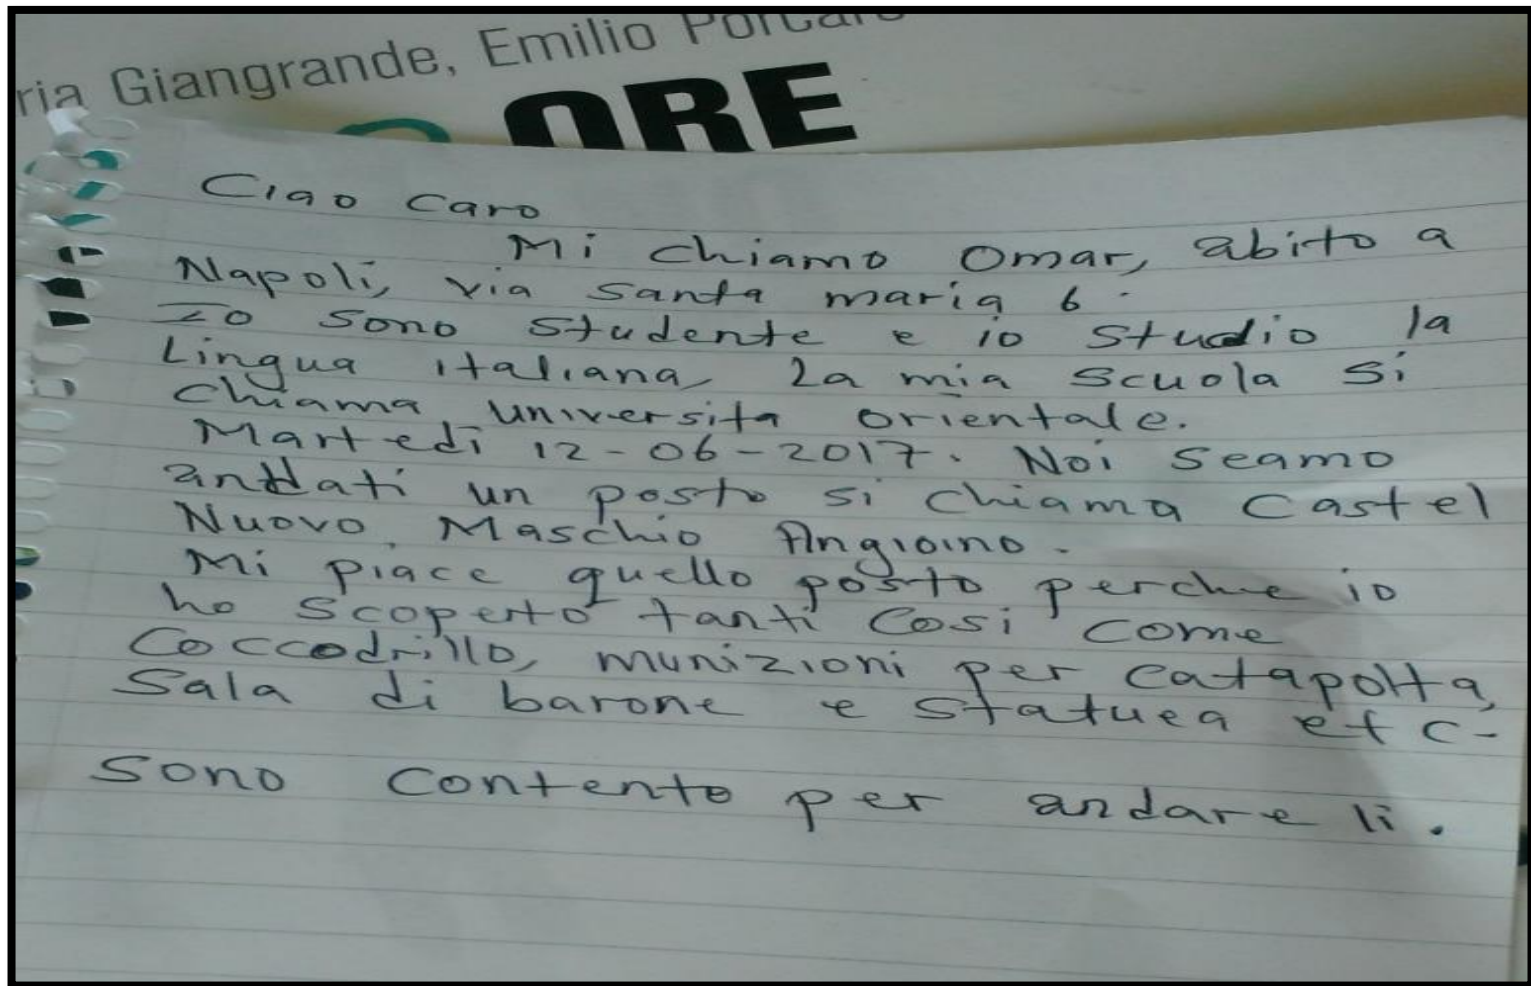 ria Giangrande, Emilio Porcaro
ORE
Ciao caro
Mi chiamo Omar, abito a
Napoli, via santa maria 6.
Io sono studente e io studio la
Lingua italiana, La mia scuola si
chiama universita orientale.
Martedì 12-06-2017. Noi seamo
andati un posto si chiama Castel
Nuovo. Maschio Angioino.
Mi piace quello posto perche io
ho scoperto tanti Cosi come
Coccodrillo, munizioni per catapolta,
Sala di barone e statuea etc-
Sono contento per andare li.